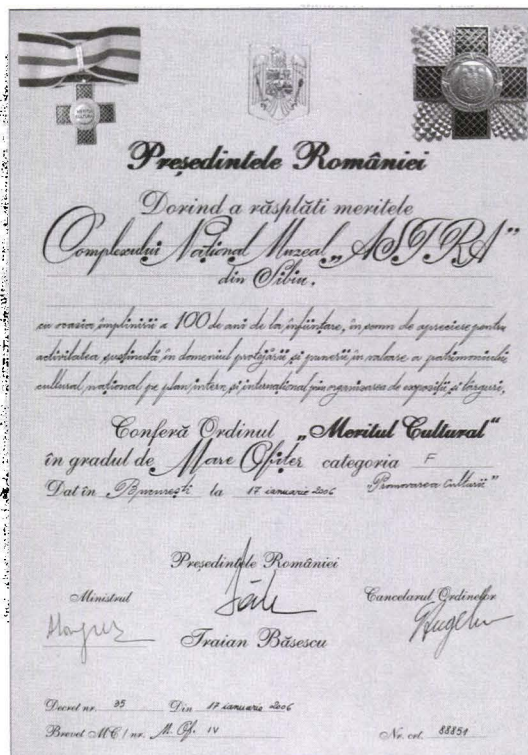 Președintele României
Dorind a răsplăti meritele
Complexului Național Muzeal „ASTRA”
din Sibiu,
cu ocazia împlinirii a 100 de ani de la înființare, în semn de apreciere pentru
activitatea susținută în domeniul protejării și punerii în valoare a patrimoniului
cultural național pe plan intern și internațional prin organizarea de expoziții și târguri,
Conferă Ordinul „Meritul Cultural”
în gradul de Mare Ofițer categoria F
Dat în București la 17 ianuarie 2006 "Promovarea Culturii"
Președintele României
Ministrul Cancelarul Ordinelor
Traian Băsescu
Decret nr. 35 Din 17 ianuarie 2006
Brevet MC / nr. M. Of. IV Nr. crt. 88851